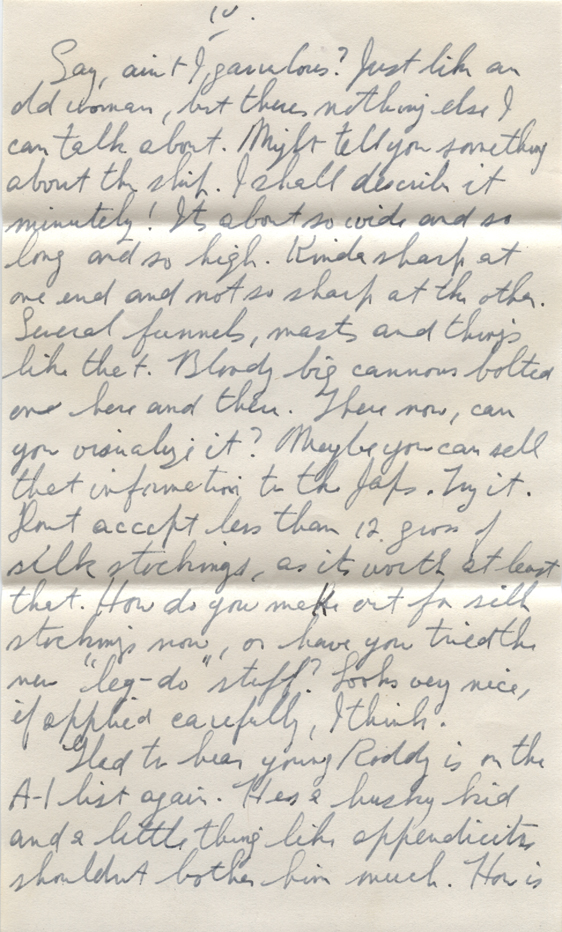 IV.
Say, ain't I garrulous? Just like an
old woman, but theres nothing else I
can talk about. Might tell you something
about the ship. I shall describe it
minutely! Its about so wide and so
long and so high. Kinda sharp at
one end and not so sharp at the other.
Several funnels, masts and things
like that. Bloody big cannons bolted
on here and there. There now, can
you visualize it? Maybe you can sell
that information to the Japs. Try it.
Dont accept less than 12 gross of
silk stockings, as its worth at least
that. How do you make out for silk
stockings now, or have you tried the
new "leg-do" stuff? Looks very nice,
if applied carefully, I think.
Glad to hear young Roddy is on the
A-1 list again. Hes a husky kid
and a little thing like appendicitis
shouldn't bother him much. How is